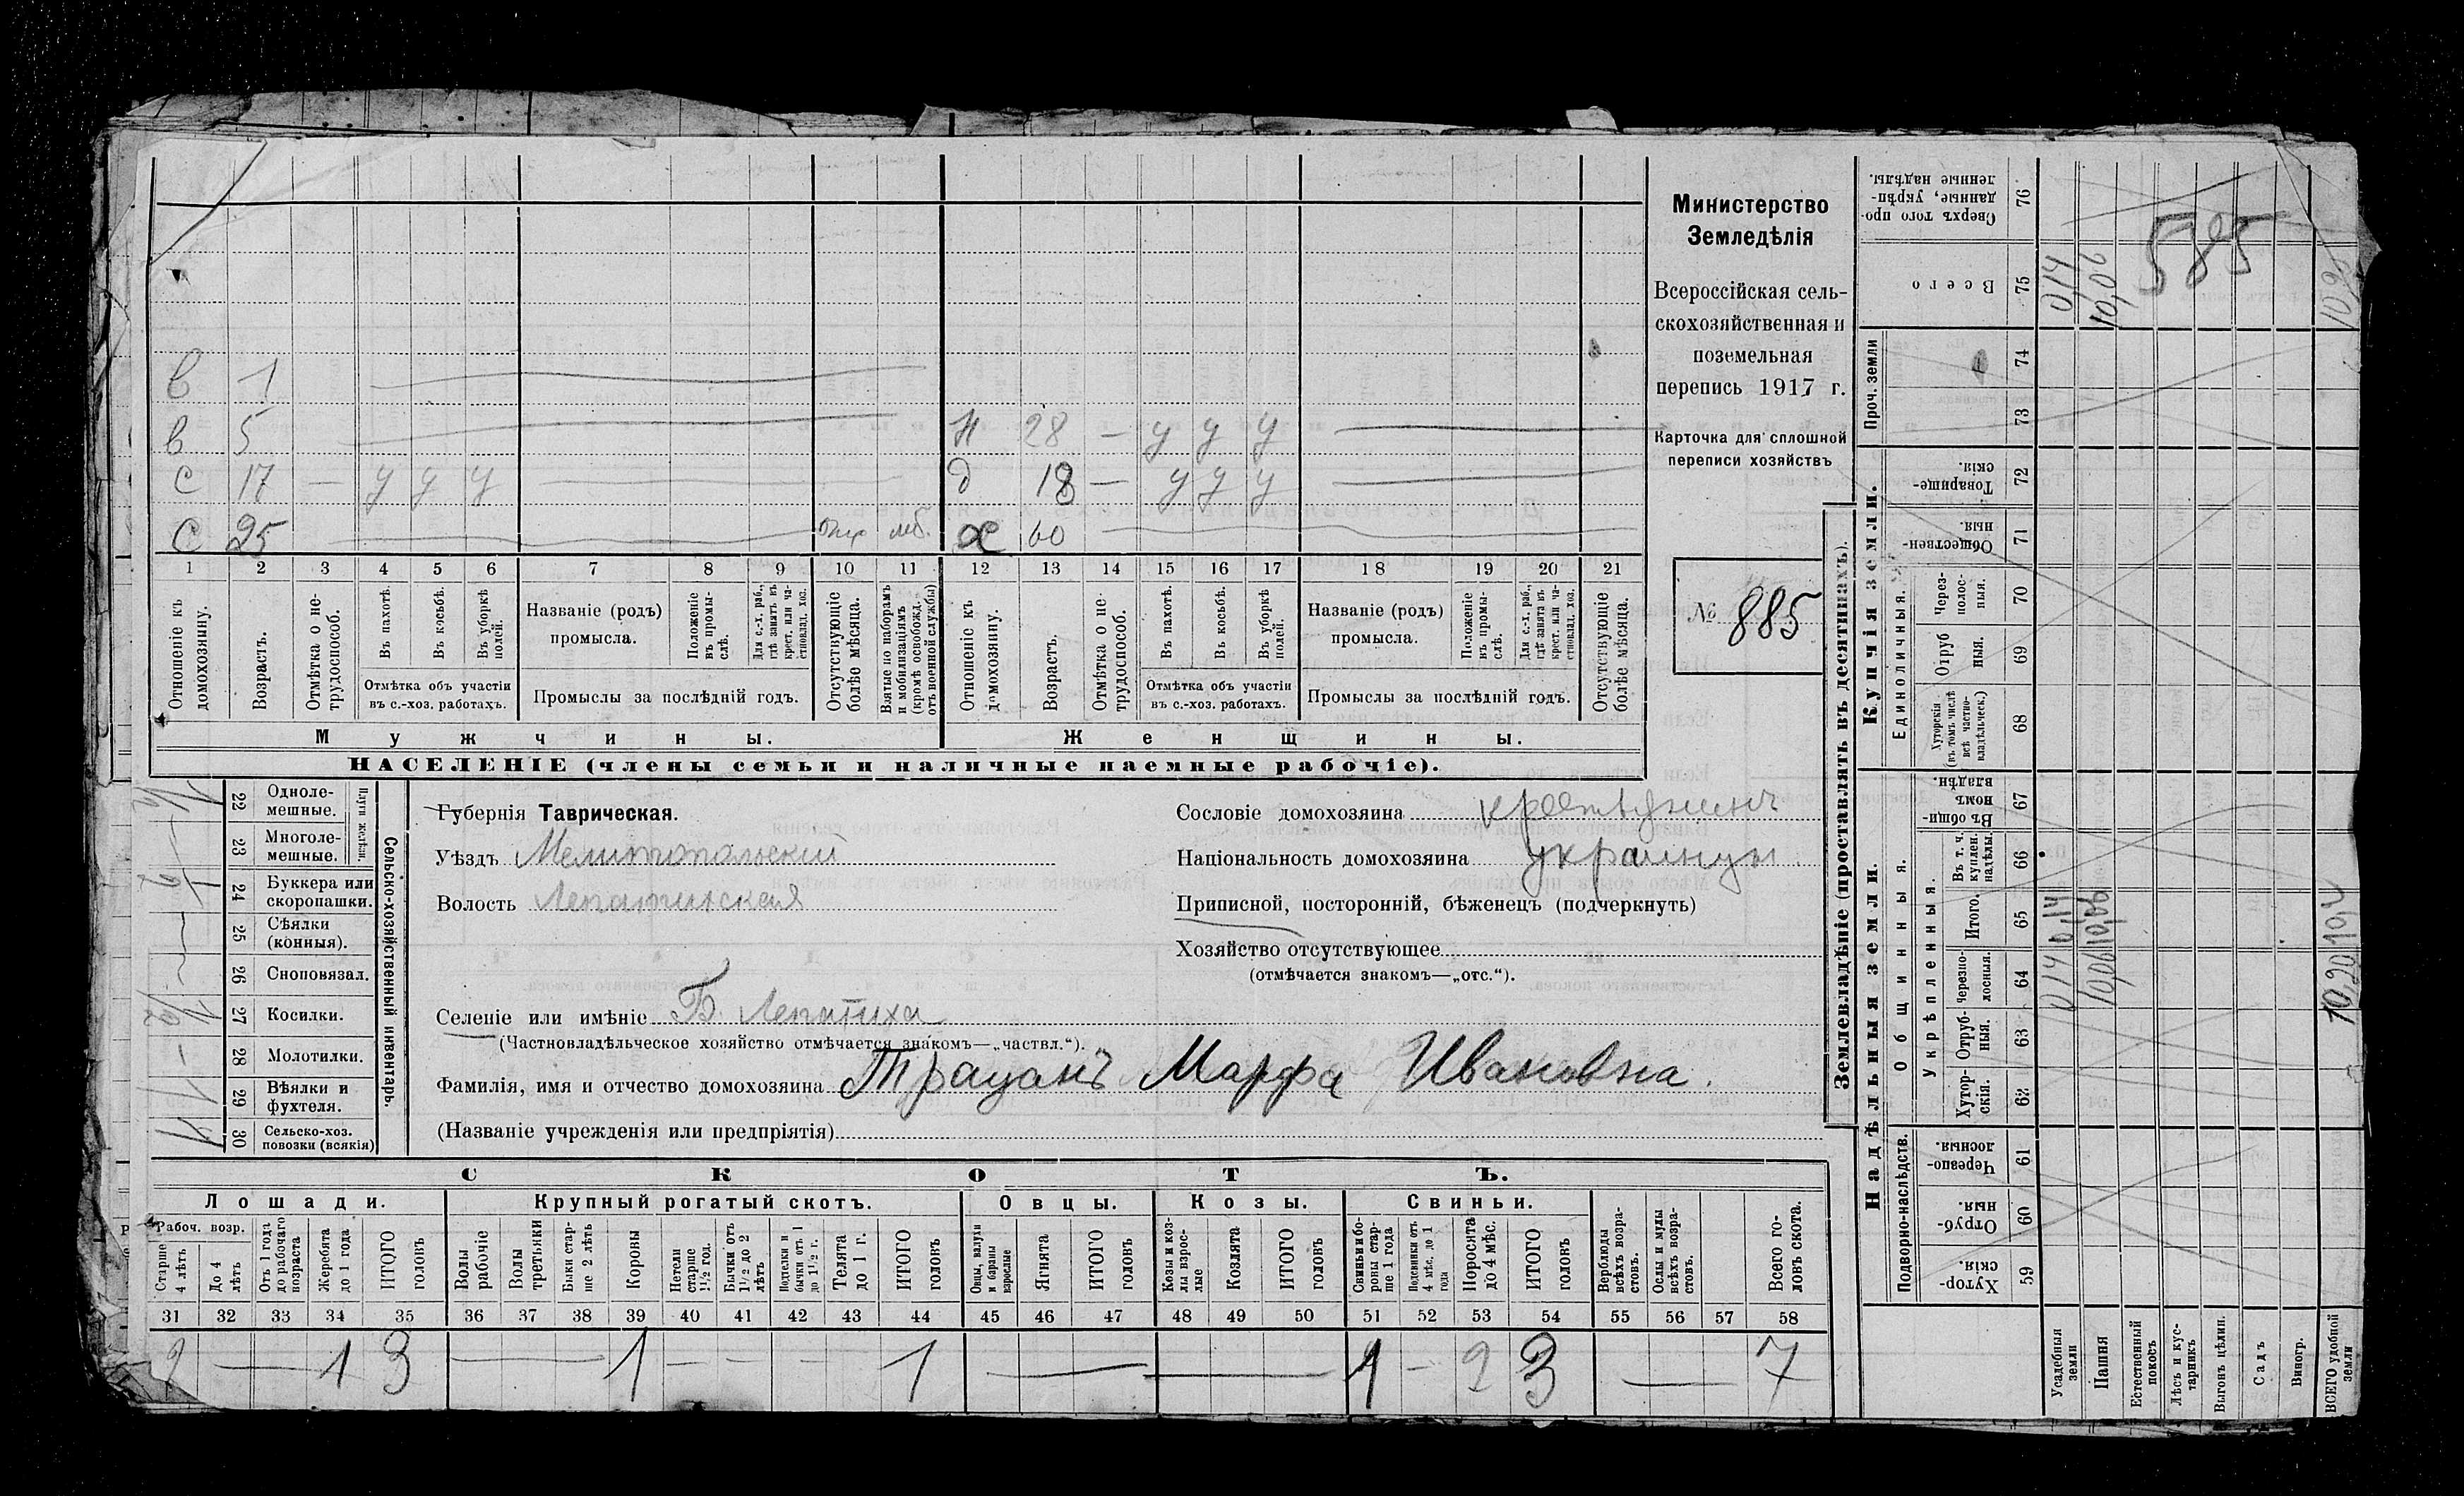 Министерство
Земледѣлія
Всероссійская сель-
скохозяйственная и
поземельная
перепись 1917 г.
Карточка для сплошной
переписи хозяйствъ
№ 885
в 1
в 5 Н 28 — у у у
с 17 — у у у д 18 — у у у
с 25 х 60
1 2 3 4 5 6 7 8 9 10 11 12 13 14 15 16 17 18 19 20 21
Отношеніе къ домохозяину.
Возрастъ.
Отмѣтка о не-трудоспособ.
Въ пахотѣ.
Въ косьбѣ.
Въ уборкѣ полей.
Отмѣтка объ участіи въ с.-хоз. работахъ.
Названіе (родъ) промысла.
Положеніе въ промы-слѣ.
Для с.-х. раб., гдѣ занятъ въ крест. или ча-стновлад. хоз.
Промыслы за послѣдній годъ.
Отсутствующіе болѣе мѣсяца.
Взятые по наборамъ и мобилизаціямъ (кромѣ освобожд. отъ военной службы)
Отношеніе къ домохозяину.
Возрастъ.
Отмѣтка о не-трудоспособ.
Въ пахотѣ.
Въ косьбѣ.
Въ уборкѣ полей.
Отмѣтка объ участіи въ с.-хоз. работахъ.
Названіе (родъ) промысла.
Положеніе въ промы-слѣ.
Для с.-х. раб., гдѣ занята въ крест. или ча-стновлад. хоз.
Промыслы за послѣдній годъ.
Отсутствующіе болѣе мѣсяца.
Мужчины. Женщины.
НАСЕЛЕНІЕ (члены семьи и наличные наемные рабочіе).
Сельско-хозяйственный инвентарь.
Плуги желѣзн.
22 Одноле-мешные. 1/2
23 Многоле-мешные. —
24 Буккера или скоропашки. 1/2
25 Сѣялки (конныя). —
26 Сноповязал. —
27 Косилки. 1/2
28 Молотилки. —
29 Вѣялки и фухтеля. 1
30 Сельско-хоз. повозки (всякія) 1
Губернія Таврическая.
Уѣздъ Мелитопольскій
Волость Лепатихская
Сословіе домохозяина крестьянинъ
Національность домохозяина украинцы
Приписной, посторонній, бѣженецъ (подчеркнуть)
Хозяйство отсутствующее
(отмѣчается знакомъ—„отс.“).
Селеніе или имѣніе Б. Лепатиха
(Частновладѣльческое хозяйство отмѣчается знакомъ—„частвл.“).
Фамилія, имя и отчество домохозяина Трацанъ Марфа Ивановна.
(Названіе учрежденія или предпріятія)
СКОТЪ.
Лошади. Крупный рогатый скотъ. Овцы. Козы. Свиньи.
Рабоч. возр.
Старше 4 лѣтъ
До 4 лѣтъ
Отъ 1 года до рабочаго возраста
Жеребята до 1 года
ИТОГО головъ
Волы рабочіе
Волы третьяки
Быки стар-ше 2 лѣтъ
Коровы
Нетели старше 1 1/2 год.
Бычки отъ 1 1/2 до 2 лѣтъ
Подтелки и бычки отъ 1 до 1 1/2 г.
Телята до 1 г.
ИТОГО головъ
Овцы, валухи и бараны взрослые
Ягнята
ИТОГО головъ
Козы и коз-лы взрос-лые
Козлята
ИТОГО головъ
Свиньи и бо-ровы стар-ше 1 года
Подсвинки отъ 4 мѣс. до 1 года
Поросята до 4 мѣс.
ИТОГО головъ
Верблюды всѣхъ возра-стовъ.
Ослы и мулы всѣхъ возра-стовъ.
Всего го-ловъ скота.
31 32 33 34 35 36 37 38 39 40 41 42 43 44 45 46 47 48 49 50 51 52 53 54 55 56 57 58
2 — 1 3 — 1 — — — — 1 — — 1 — 2 3 — 7
Землевладѣніе (проставлять въ десятинахъ).
Купчія земли.
Надѣльныя земли.
Сверхъ того про-данные, укрѣп-ленные надѣлы. 76
585
Всего 75 0,14 10,06
Проч. земли 74 73
Товарище-скія. 72
Обществен-ныя. 71
Единоличныя.
Через-полос-ныя. 70
Отруб-ныя. 69
Хуторскія (въ томъ числѣ всѣ частно-владѣльческ.) 68
Общинныя.
Въ общи-номъ владѣн. 67
Укрѣпленныя.
Въ т. ч. куплен. надѣлы. 66
Итого. 65 0,14 10,06
Черезпо-лосныя. 64 0,14 10,06 10,20
Отруб-ныя. 63
Хутор-скія. 62
Подворно-наслѣдств.
Черезпо-лосныя. 61
Отруб-ныя. 60
Хутор-скія. 59
Усадебныя земли
Пашня
Естественный покосъ
Лѣсъ и кус-тарникъ
Выгонъ цѣлин.
Садъ
Виногр.
ВСЕГО удобной земли